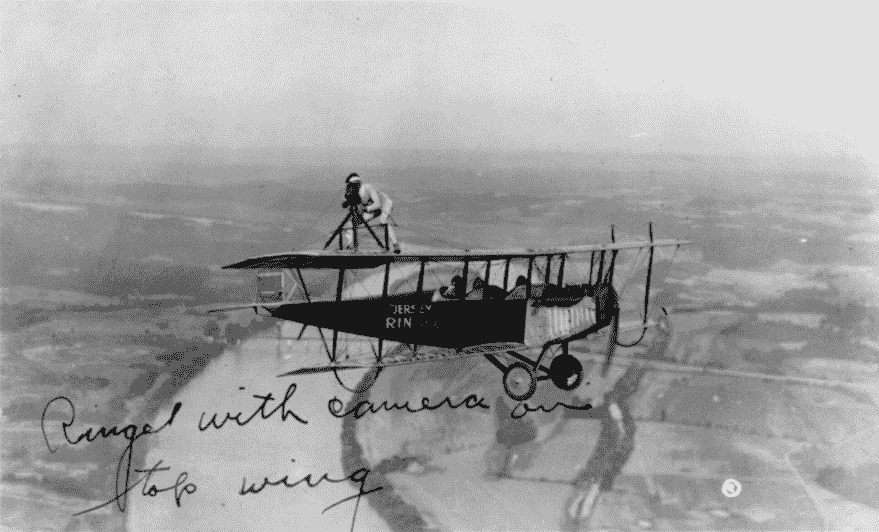 JERSEY
RIN
Ringel with camera on
top wing